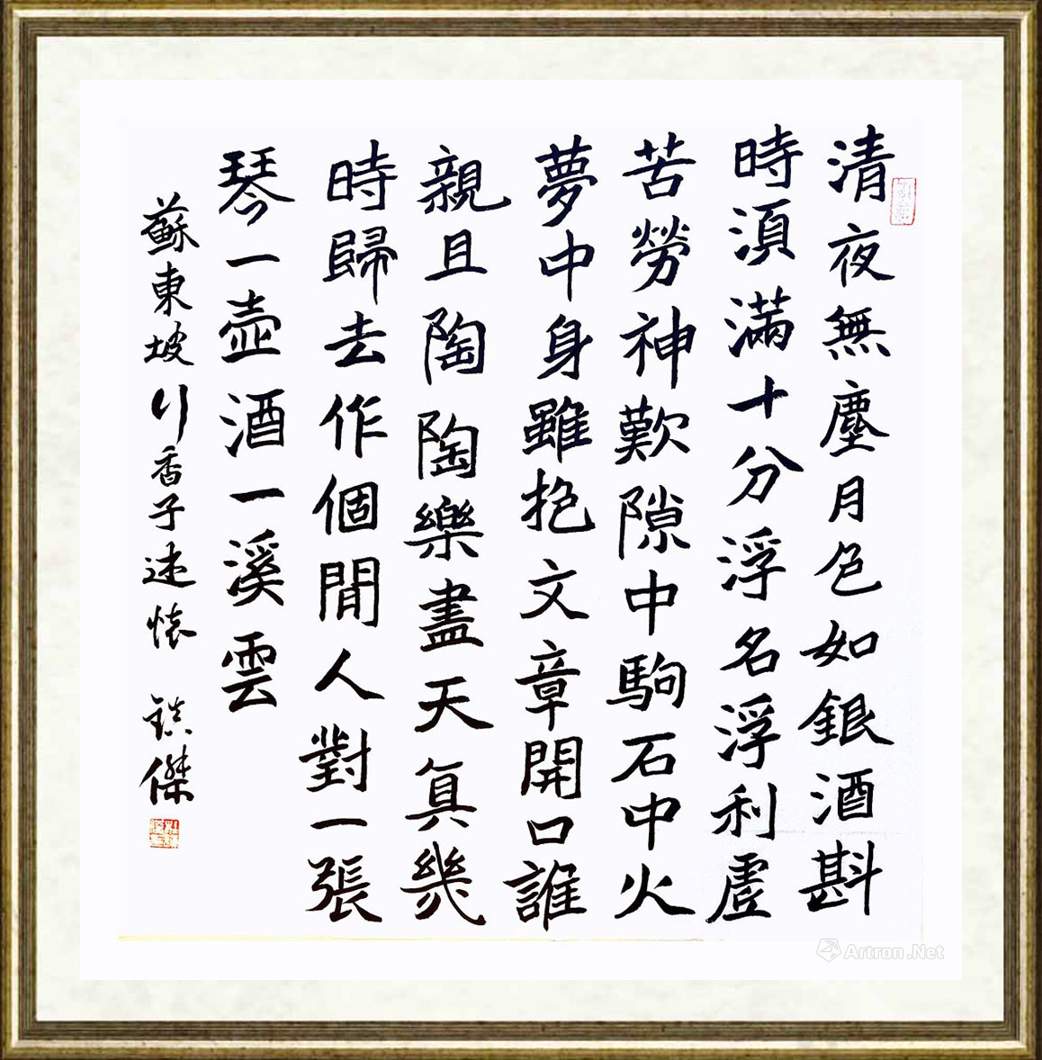 清夜無塵月色如銀酒斟
時湏滿十分浮名浮利虛
苦勞神歎隙中駒石中火
夢中身雖抱文章開口誰
親且陶陶樂盡天真幾
時歸去作個閒人對一張
琴一壺酒一溪雲
蘇東坡行香子述懷 鎮傑
Artron.Net